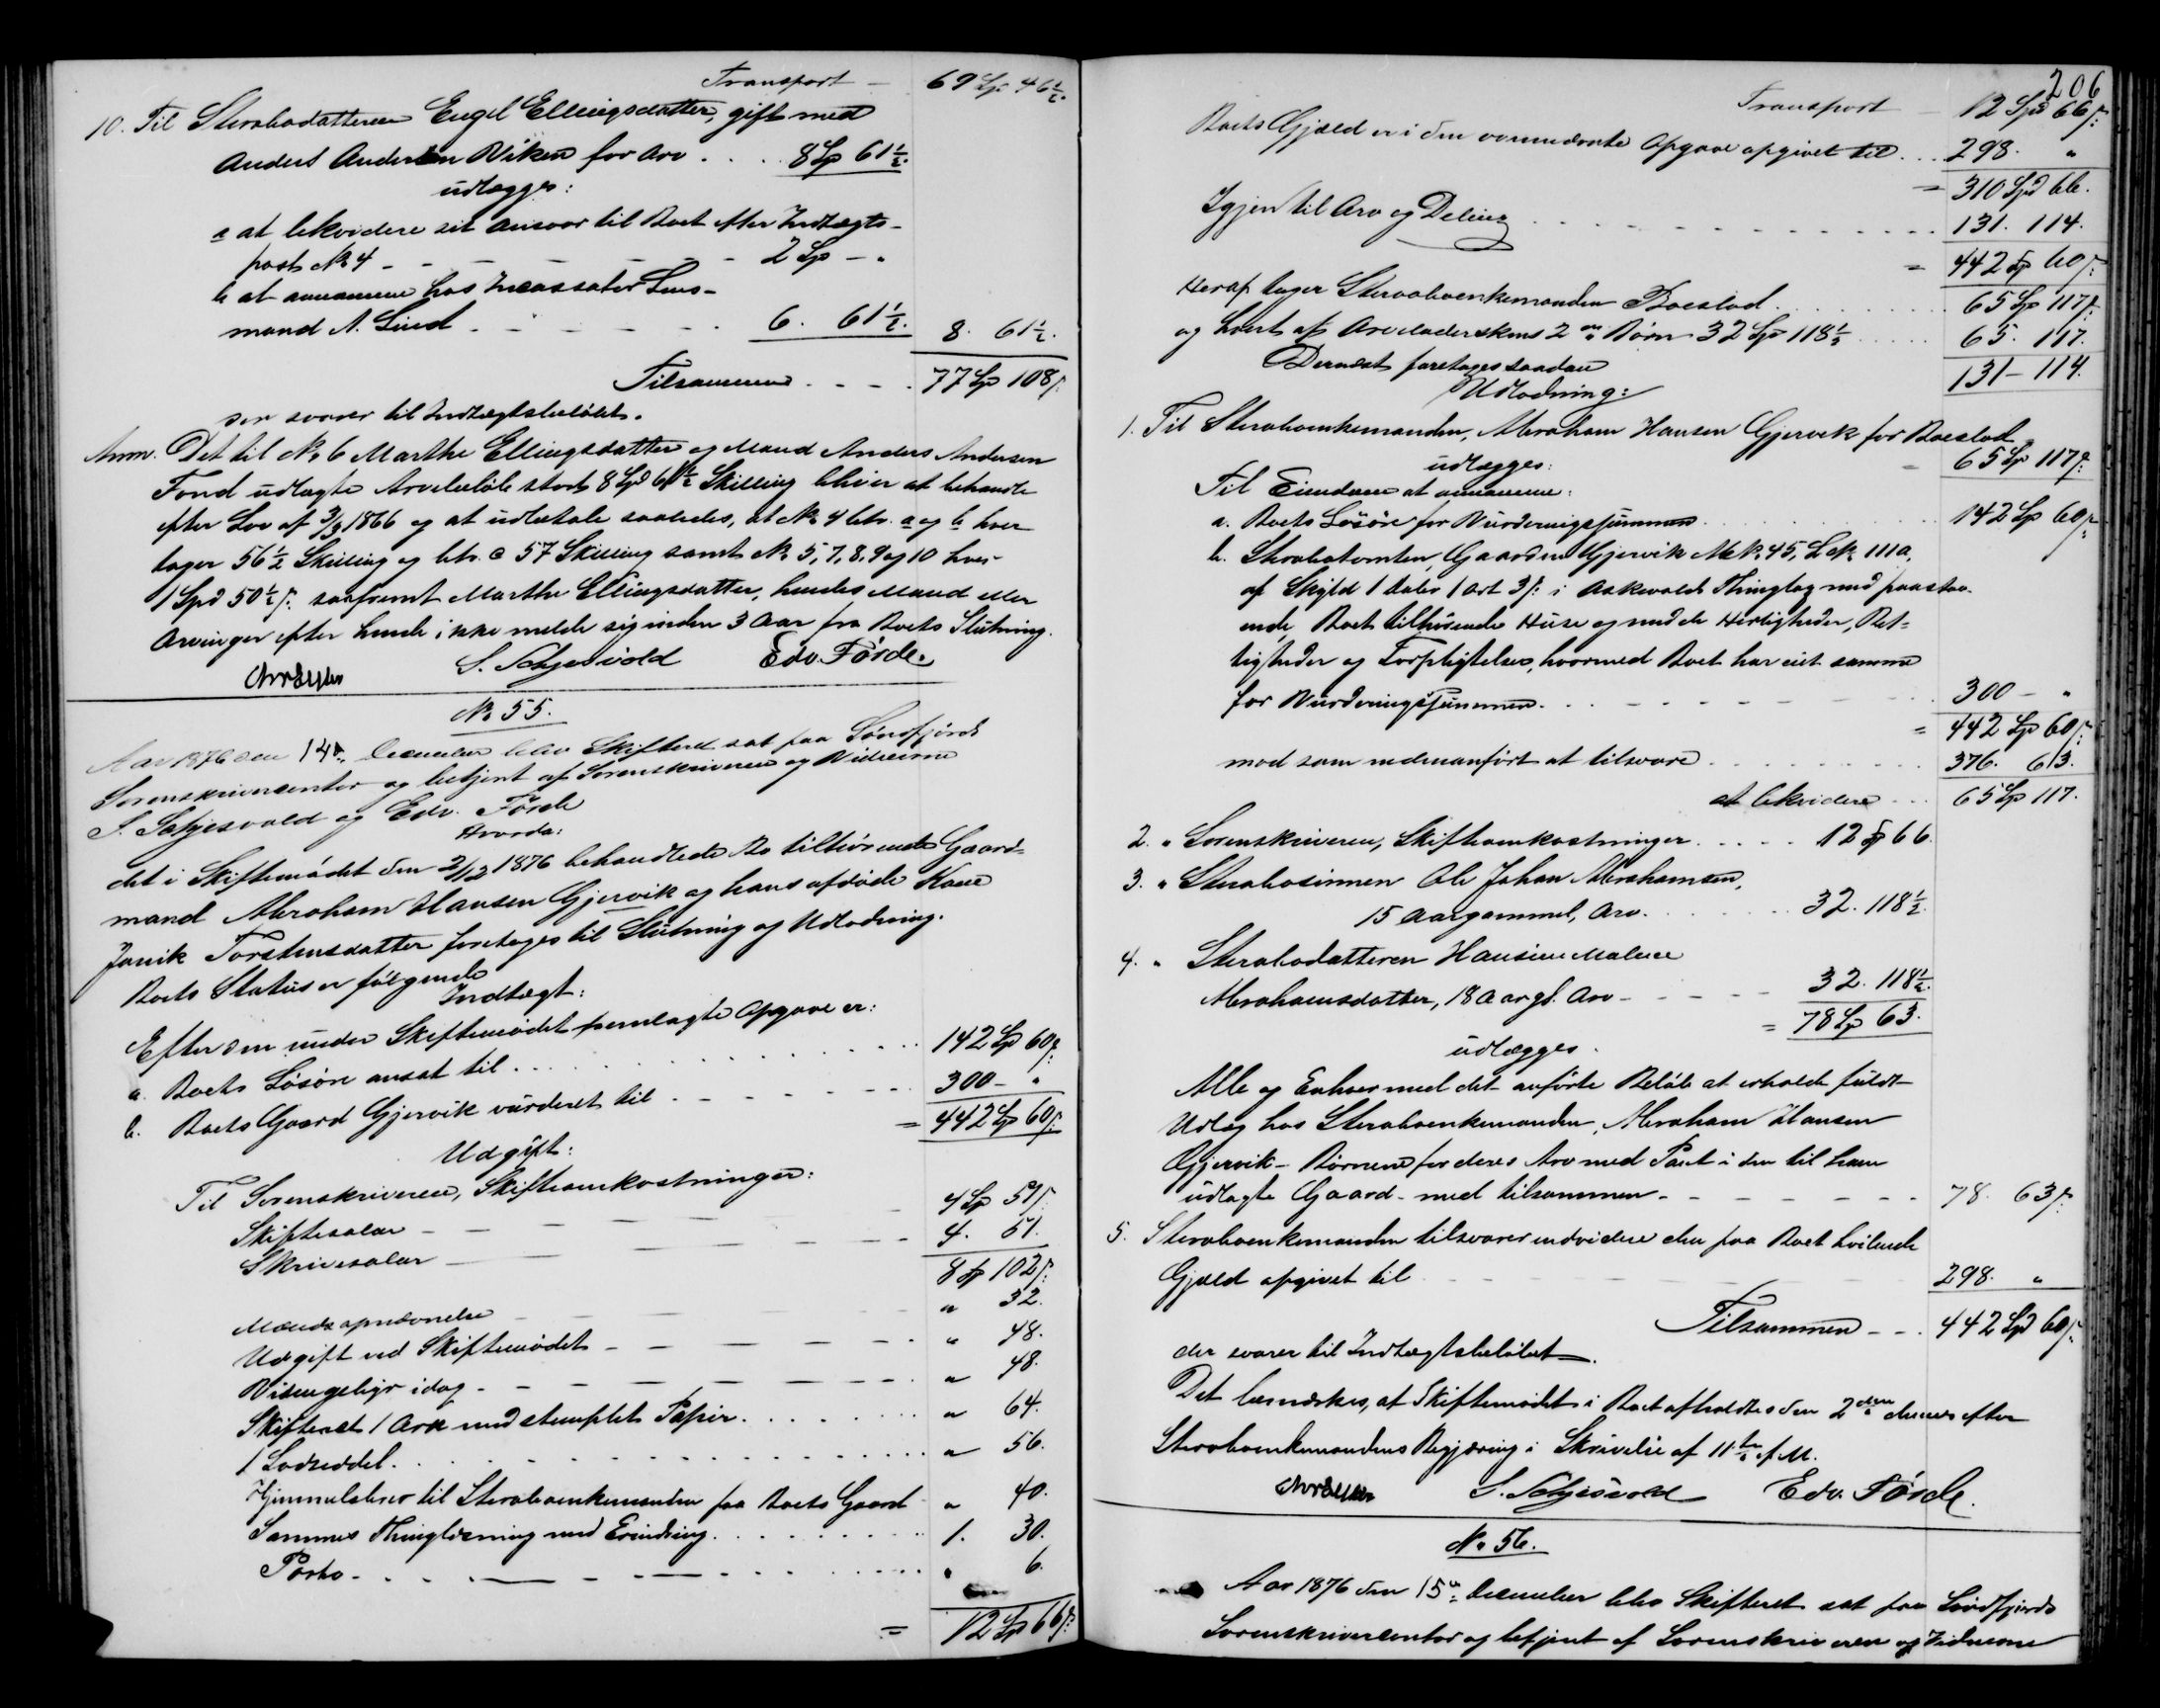 Transport — 69 Sp 46½.
10. Til Stervbodatteren Engel Ellingsdatter, gift med
Anders Andersen Viken for Arv . . . . 8 Sp 61½.
udlægges:
a at likvidere sit Ansvar til Boet efter Indtægts-
post No 4 - - - - - - 2 Sp — "
b at annamme hos Incassator Lens-
mand A. Lind - - - - - 6. 61½. 8. 61½.
Tilsammen . . . . 77 Sp 108 ſ:
der svarer til Indtægtsbeløbet.
Anm. Det til No 6 Marthe Ellingsdatter og Mand Anders Andersen
Fond udlagte Arvebeløb stort 8 Spd 61½ Skilling bliver at behandle
efter Lov af 3/3 1866 og at udbetale saaledes, at No 4 litr. a og b hver
tager 56½ Skilling og litr. c 57 Skilling samt No 5, 7, 8, 9 og 10 hver
1 Spd 50½ ſ: saafremt Marthe Ellingsdatter, hendes Mand eller
Arvinger efter hende ikke melde sig inden 3 Aar fra Boets Slutning.
S. Schjesvold Edv. Førde.
No 55.
Aar 1876 den 14de December blev Skifteret sat paa Søndfjords
Sorenskrivercontor og betjent af Sorenskriveren og Vidnerne
S. Schjesvold og Edv. Førde
Hvorda:
det i Skiftemødet den 2/12 1876 behandlede Bo tilhørende Gaard-
mand Abraham Hansen Gjervik og hans afdøde Kone
Janik Torstensdatter foretages til Slutning og Udlodning.
Boets Status er følgende
Indtægt:
Efter den under Skiftemødet fremlagte Opgave er:
a. Boets Løsøre ansat til . . . . 142 Sp 60 ſ:
b. Boets Gaard Gjervik vurderet til - - - - 300 — "
= 442 Sp 60 ſ:
Udgift:
Til Sorenskriveren, Skifteomkostninger:
Skiftesalær - - - - 4 Sp 51 ſ:
Skrivesalær - - - - 4. 51.
8 Sp 102 ſ:
Mænds opnævnelse - - - - " 32.
Udgift ved Skiftemødet - - - - " 48.
Vidnegebyr idag - - - - " 48.
Skifteret 1 Ark med stemplet Papir . . . . " 64.
1 Lodseddel . . . . " 56.
Hjemmelsbrev til Stervboenkemanden paa Boets Gaard " 40.
Sammes Thinglæsning med Erindring . . . . 1. 30.
Porto . . . . " 6.
= 12 Sp 66 ſ:
206
Transport — 12 Spd 66 ſ:
Boets Gjæld er i den ovennævnte Opgave opgivet til . . . 298. "
= 310 Spd 66.
Igjen til Arv og Deling . . . . 131. 114.
= 442 Sp 60 ſ:
Heraf tager Stervboenkemanden Boeslod . . . . 65 Sp 117 ſ:
og hvert af Arveladerskens 2de Børn 32 Sp 118½ . . . . 65. 117.
Dernæst foretages saadan 131 — 114.
Udlodning:
1. Til Stervboenkemanden, Abraham Hansen Gjervik for Boeslod
udlægges: 65 Sp 117 ſ:
Til Eiendom at annamme:
a. Boets Løsøre for Vurderingssummen . . . . 142 Sp 60 ſ:
b. Stervbotomten, Gaarden Gjervik M. No 45, L. No 111a,
af Skyld 1 Daler 1 Ort 3 ſ: i Askevolds Thinglag med paastaa-
ende, Boet tilhørende Huse og med de Herligheder, Ret-
tigheder og Forpligtelser, hvormed Boet har eiet samme
for Vurderingssummen . . . . 300 — "
= 442 Sp 60 ſ:
mod som nedenanført at tilsvare . . . . 376. 63.
at likvidere . . . 65 Sp 117.
2. " Sorenskriveren, Skifteomkostninger . . . . 12 Sp 66.
3. " Stervbosønnen Ole Johan Abrahamsen,
15 Aar gammel, Arv . . . . 32. 118½.
4. " Stervbodatteren Hansine Malene
Abrahamsdatter, 18 Aar gl. Arv - - - - 32. 118½.
= 78 Sp 63.
udlægges.
Alle og Enhver med det anførte Beløb at erholde fuldt
Udlæg hos Stervboenkemanden, Abraham Hansen
Gjervik - Børnene for deres Arv med Pant i den til ham
udlagte Gaard - med tilsammen - - - - 78. 63 ſ:
5. Stervboenkemanden tilsvarer endvidere den paa Boet hvilende
Gjæld opgivet til - - - - 298. "
Tilsammen - - . 442 Spd 60 ſ:
der svarer til Indtægtsbeløbet.
Det bemærkes, at Skiftemødet i Boet afholdtes den 2den dennes efter
Stervboenkemandens Begjæring i Skrivelse af 11te f. M.
S. Schjesvold Edv. Førde.
No 56.
Aar 1876 den 15de December blev Skifteret sat paa Søndfjords
Sorenskrivercontor og betjent af Sorenskriveren og Vidnerne